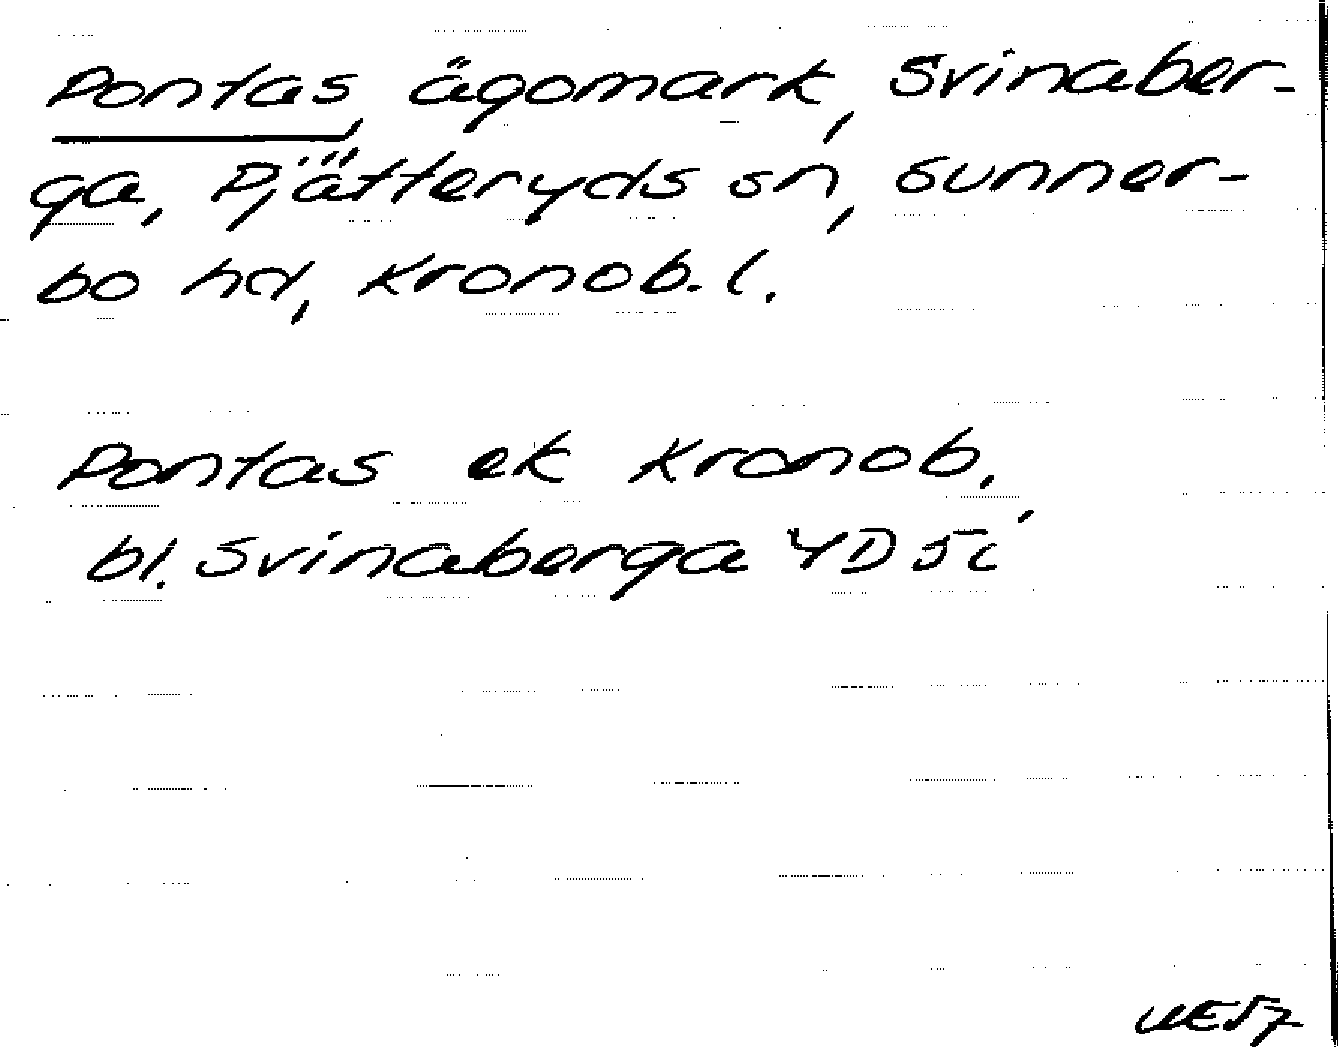 Pontas, ägomark, Svinaber-
ga, Pjätteryds sn, Sunner-
bo hd, Kronob. l.
Pontas ek Kronob.
bl. Svinaberga 4D 5c